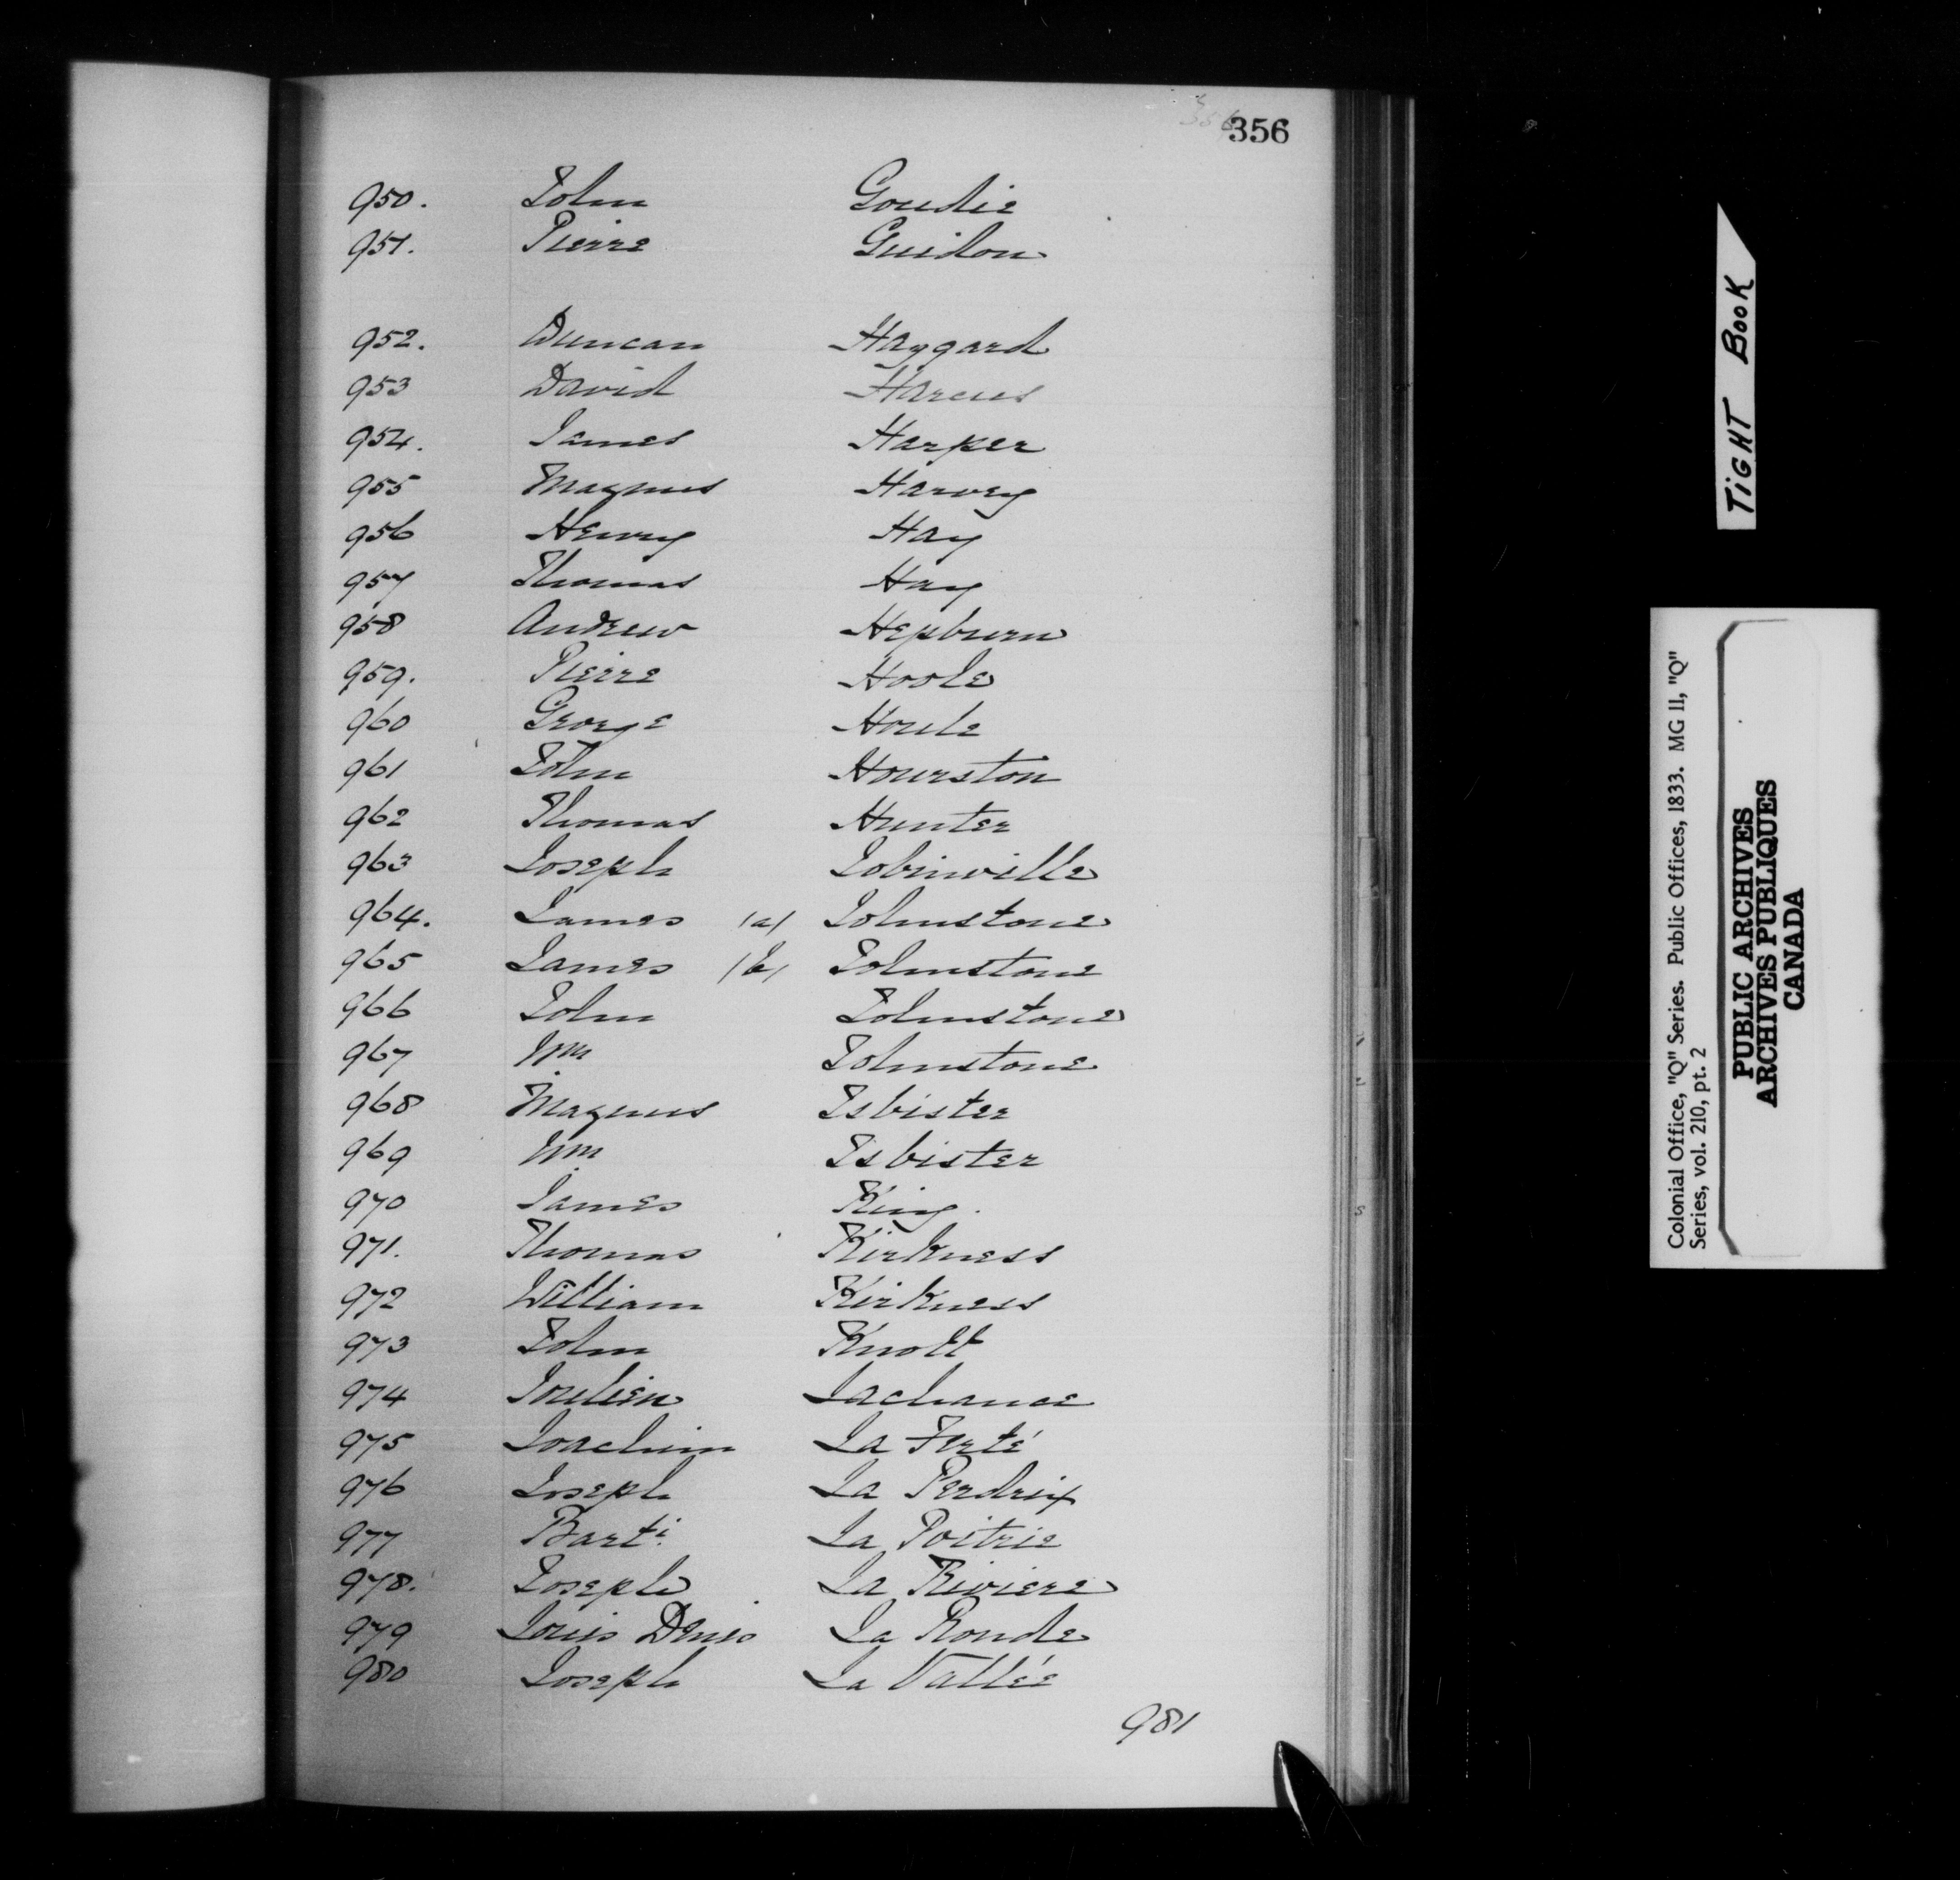 356
950. John Goudie
951. Pierre Guidon
952. Duncan Haggard
953 David Harcus
954. James Harper
955 Magnus Harvey
956 Henry Hay
957 Thomas Hay
958 Andrew Hepburn
959. Pierre Hoole
960 George Houle
961 John Hourston
962 Thomas Hunter
963 Joseph Jobinville
964. James (a) Johnstone
965 James (b) Johnstone
966 John Johnstone
967 Wm Johnstone
968 Magnus Isbister
969 Wm Isbister
970 James King.
971. Thomas Kirkness
972 William Kirkness
973 John Knott
974 Joulien Lachance
975 Joachim La Ferté
976 Joseph La Perdrix
977 Barti. La Poitrie
978. Joseph La Riviere
979 Louis Denis La Ronde
980 Joseph La Vallée
981
TiGHT BOOK
Colonial Office, "Q" Series. Public Offices, 1833. MG 11, "Q"
Series, vol. 210, pt. 2
PUBLIC ARCHIVES
ARCHIVES PUBLIQUES
CANADA